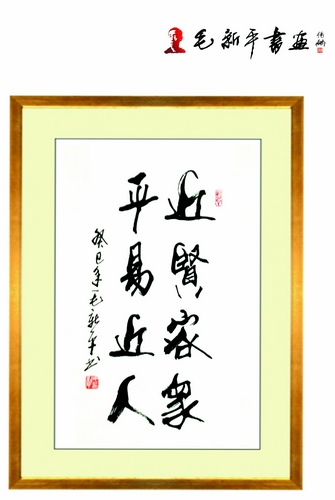 毛新平書畫
近賢容衆
平易近人
癸巳年毛新平书